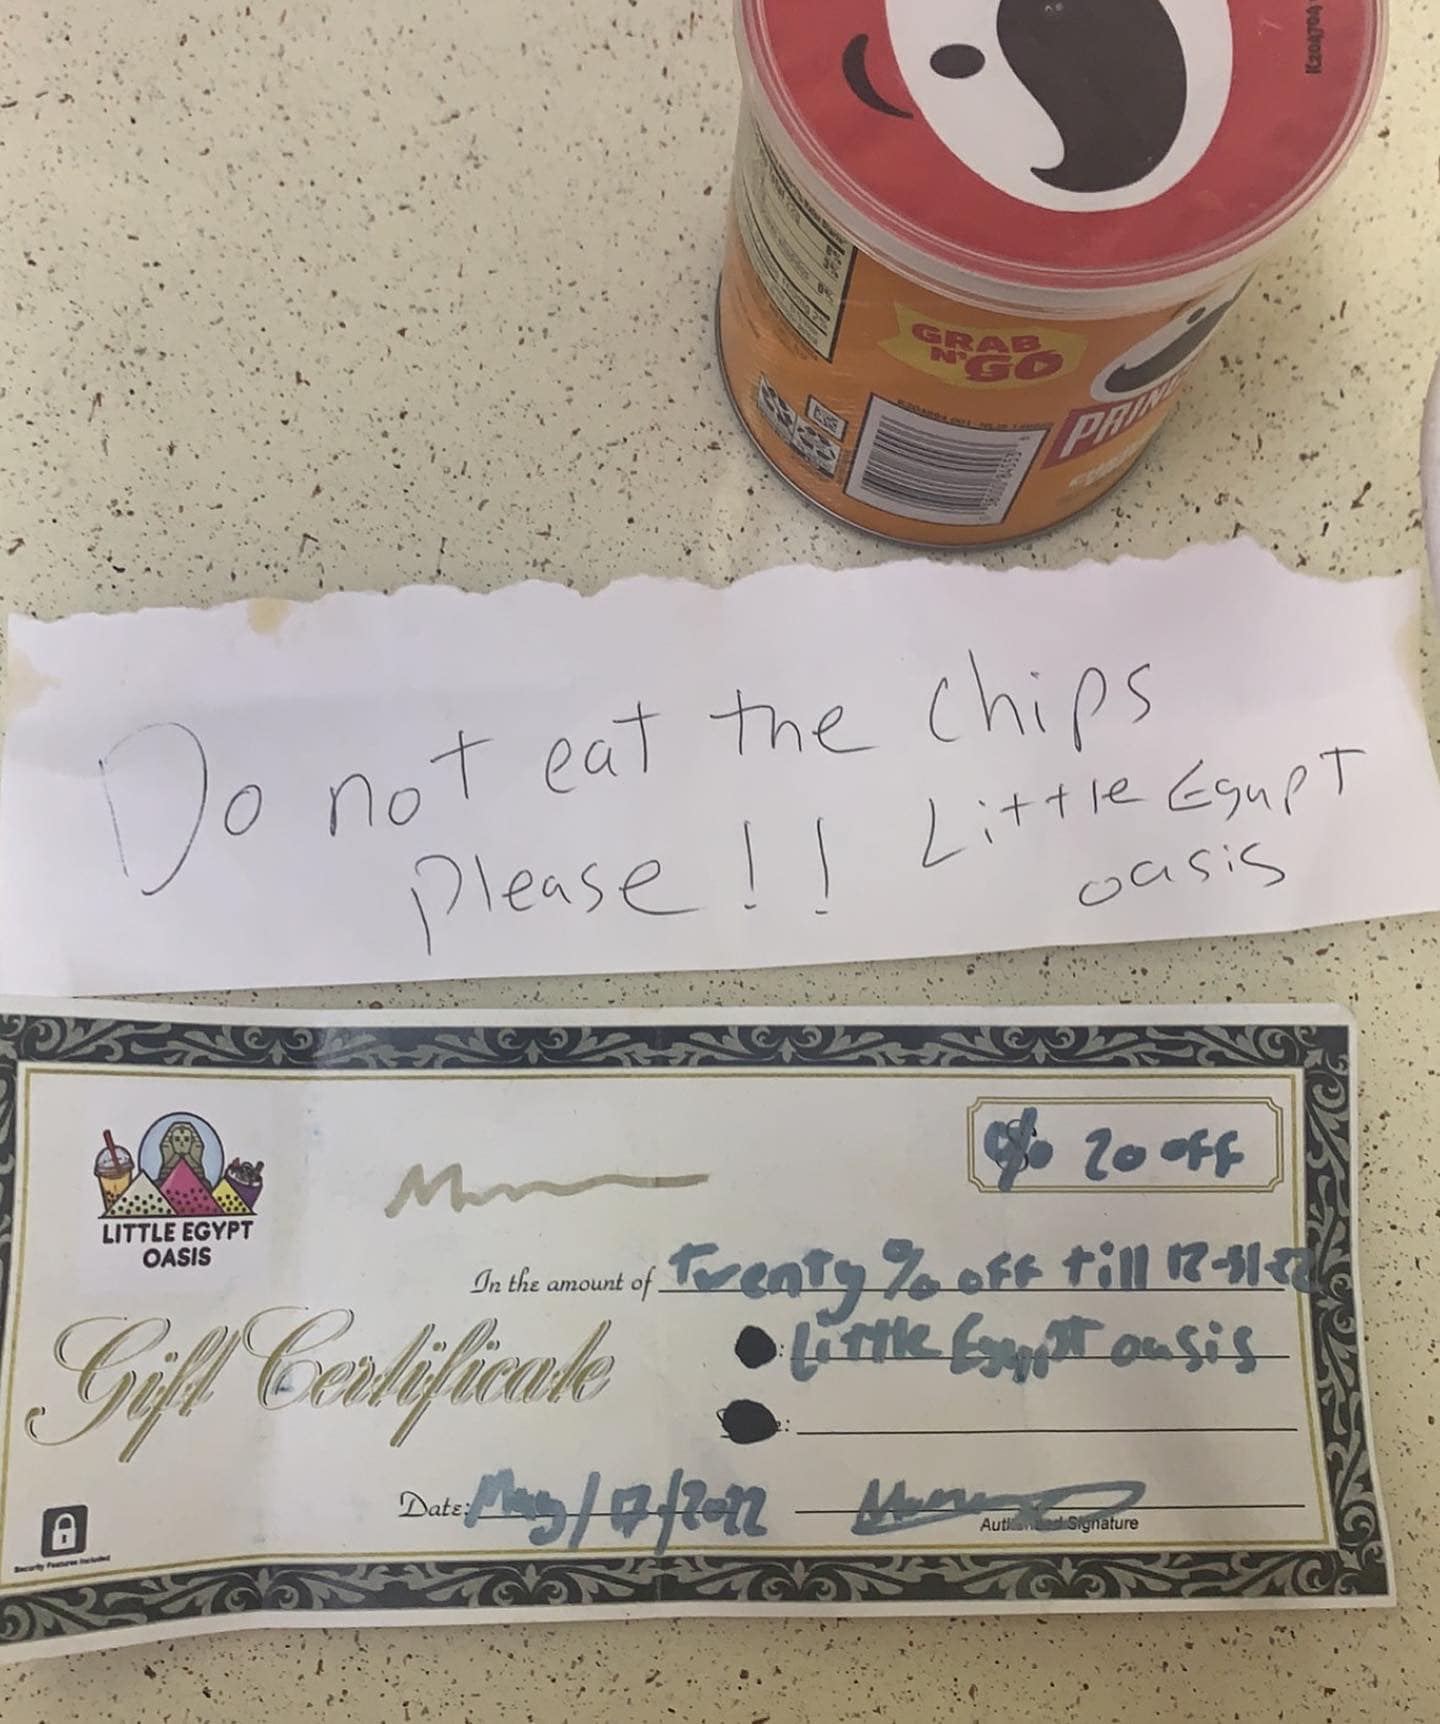 GRAB
N' GO
Do not eat the chips
please!! Little Egypt
oasis
LITTLE EGYPT
OASIS
% 20 off
In the amount of Twenty % off till 12-31-22
Gift Certificate
: Little Egypt oasis
:
Date: May/17/2022
Authorized Signature
Security Features Included